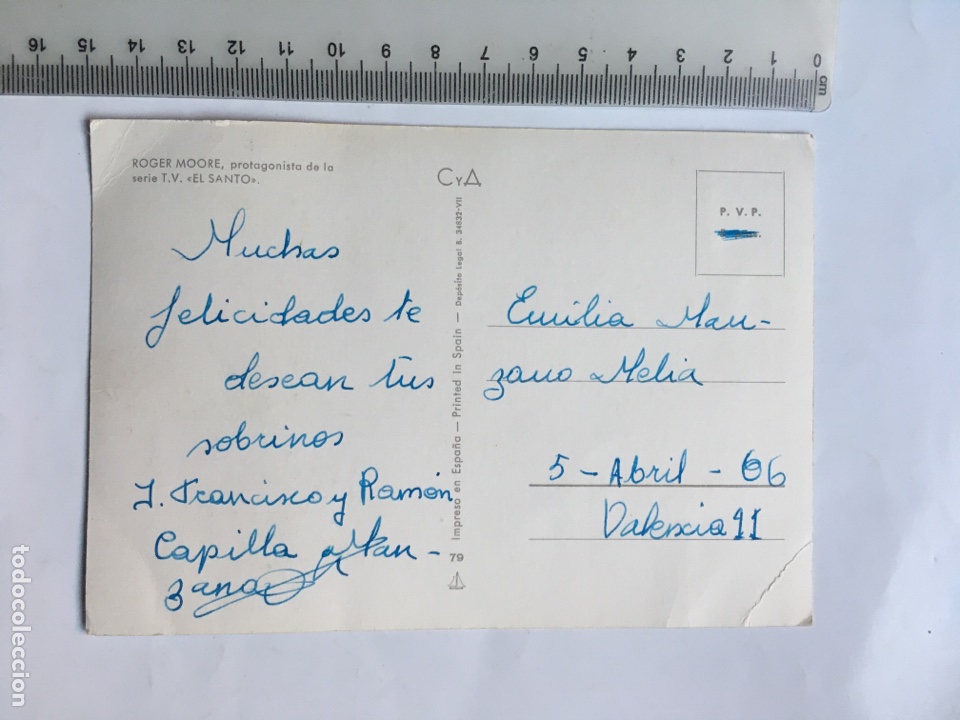 16 15 14 13 12 11 10 9 8 7 6 5 4 3 2 1 0 cm
ROGER MOORE, protagonista de la
serie T.V. «EL SANTO».
CYA
P. V. P.
Muchas
felicidades te
desean tus
sobrinos
J. Francisco y Ramón
Capilla Man-
zano
Impreso en España — Printed in Spain — Depósito Legal B. 34832-VII
79
Emilia Man-
zano Melia
5 - Abril - 66
Valencia 11
todocoleccion